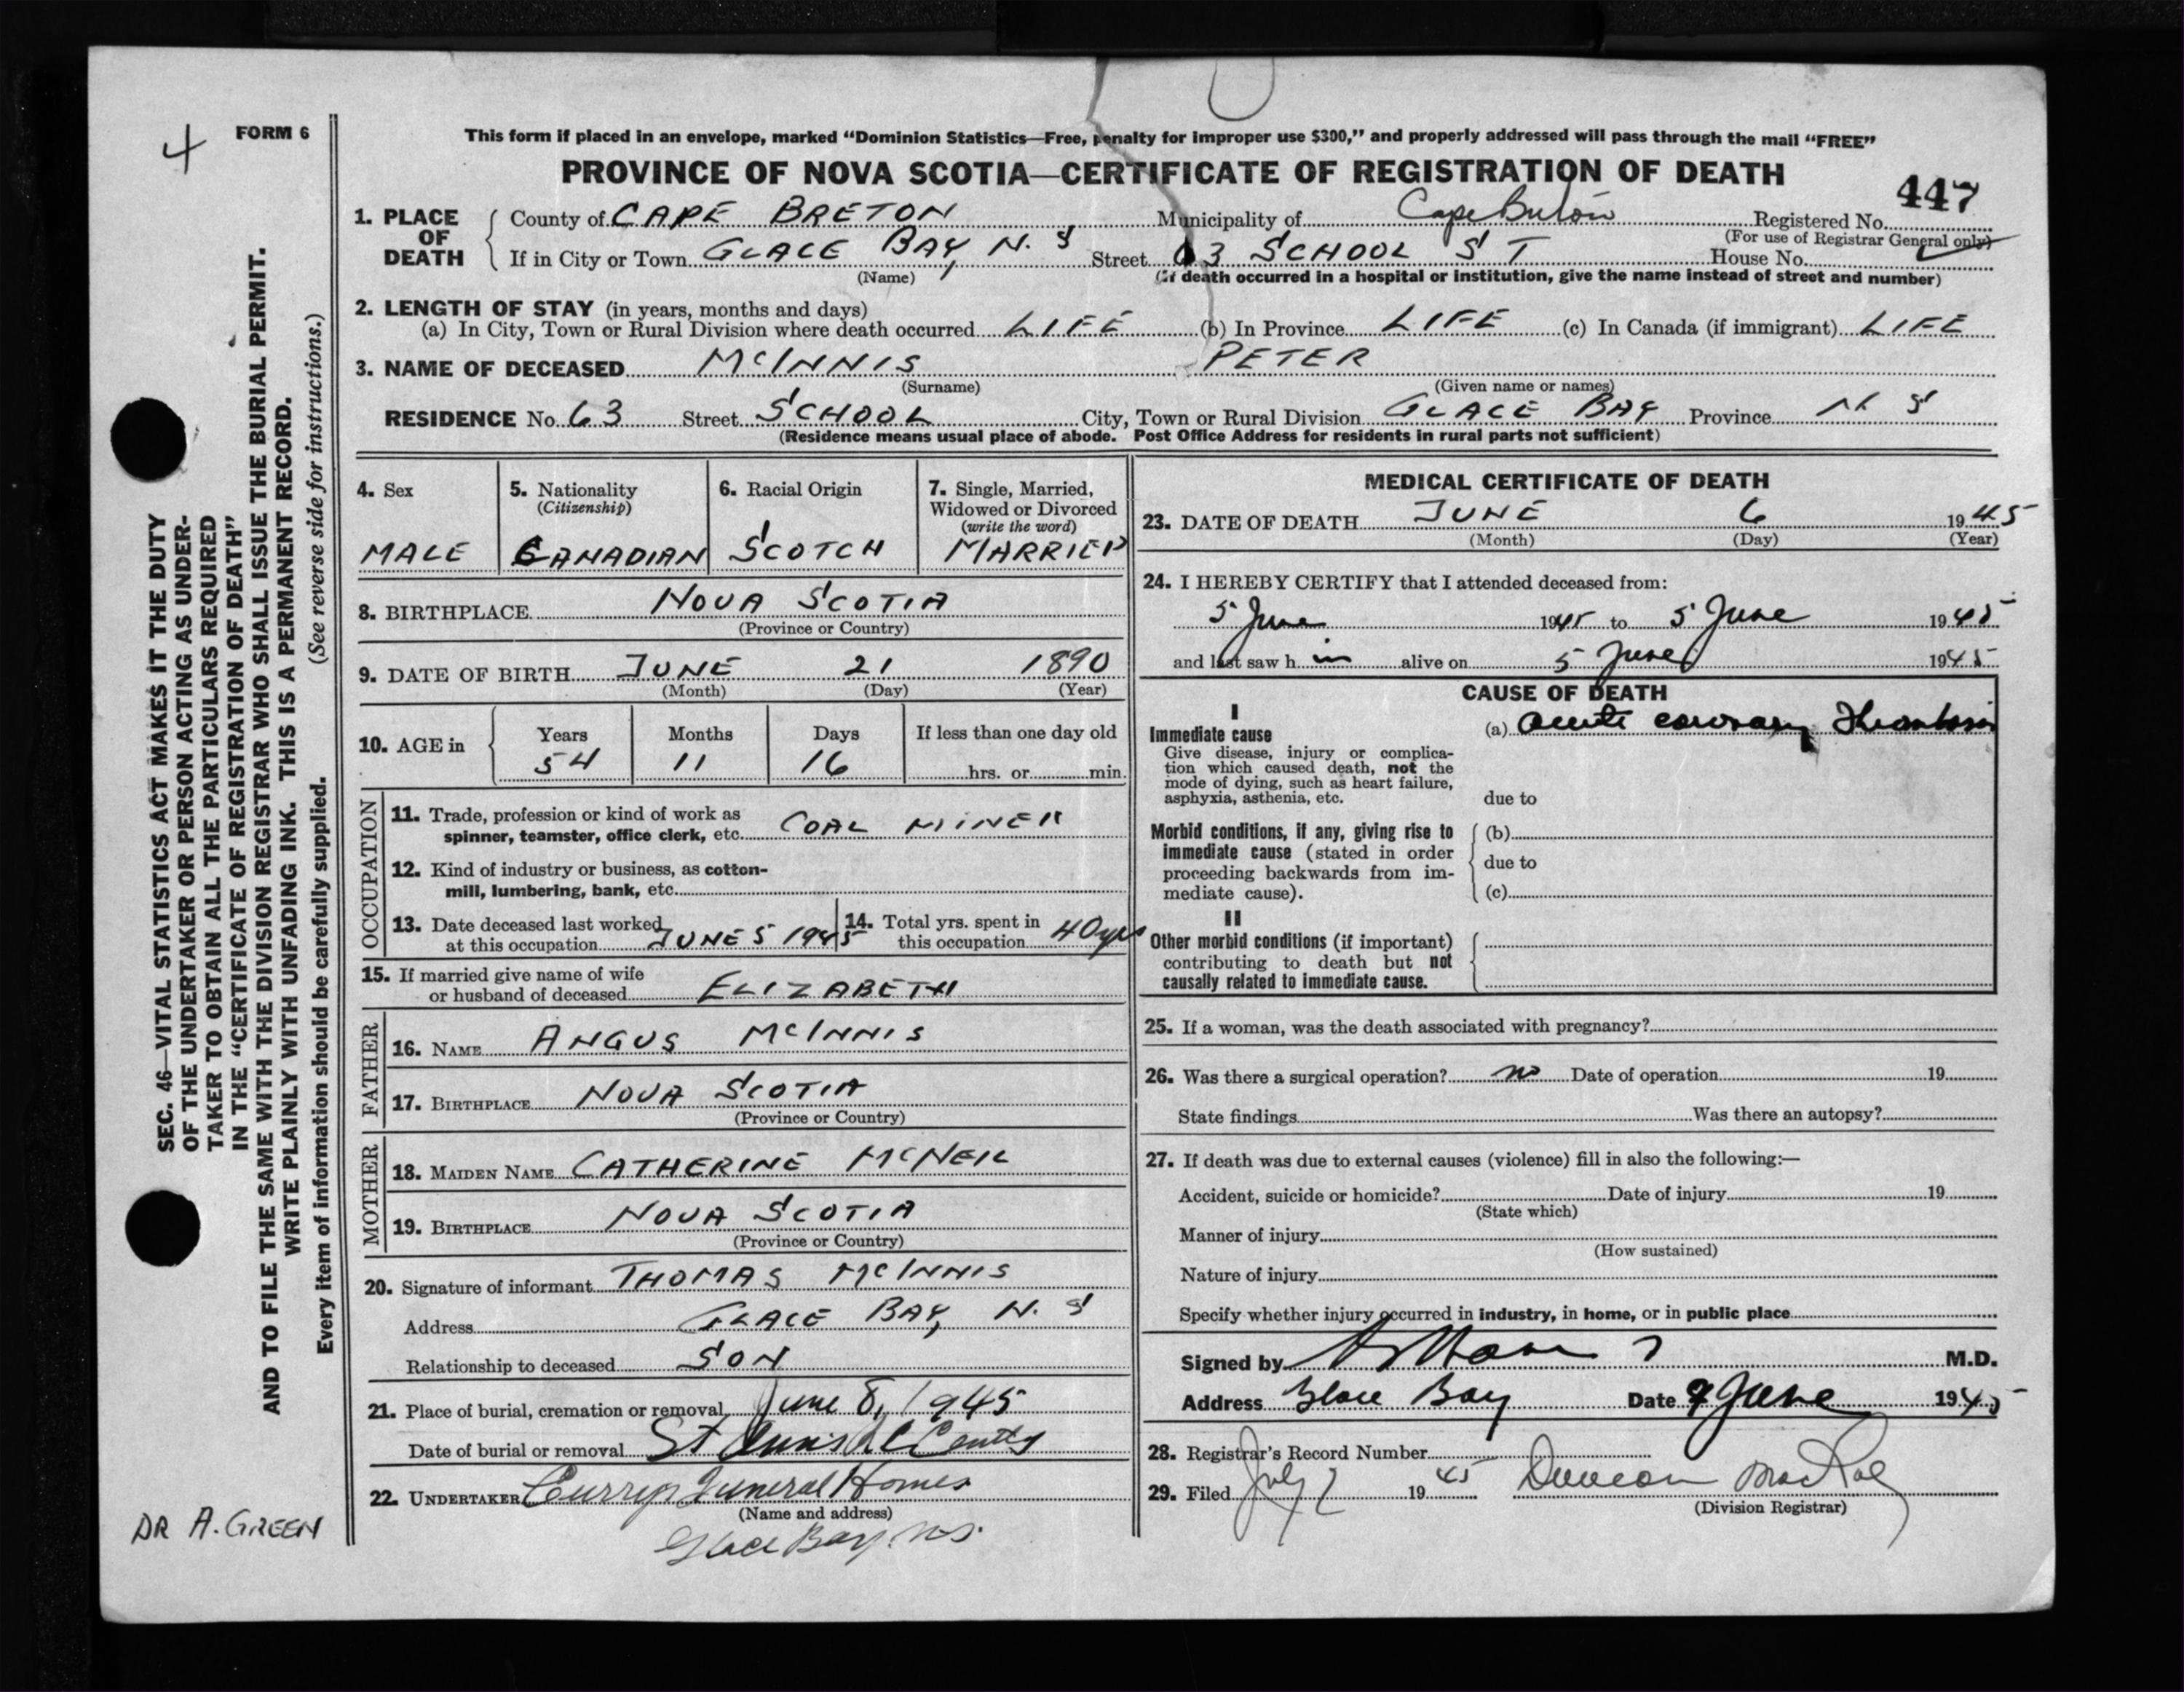 4
FORM 6
This form if placed in an envelope, marked “Dominion Statistics—Free, penalty for improper use $300,” and properly addressed will pass through the mail “FREE”
PROVINCE OF NOVA SCOTIA—CERTIFICATE OF REGISTRATION OF DEATH
447
1. PLACE OF DEATH County of CAPE BRETON Municipality of Cape Breton Registered No.
(For use of Registrar General only)
If in City or Town GLACE BAY, N. S Street 63 SCHOOL ST House No.
(Name) (If death occurred in a hospital or institution, give the name instead of street and number)
2. LENGTH OF STAY (in years, months and days)
(a) In City, Town or Rural Division where death occurred LIFE (b) In Province LIFE (c) In Canada (if immigrant) LIFE
3. NAME OF DECEASED McINNIS PETER
(Surname) (Given name or names)
RESIDENCE No. 63 Street SCHOOL City, Town or Rural Division GLACE BAY Province N S
(Residence means usual place of abode. Post Office Address for residents in rural parts not sufficient)
4. Sex
MALE
5. Nationality
(Citizenship)
CANADIAN
6. Racial Origin
SCOTCH
7. Single, Married,
Widowed or Divorced
(write the word)
MARRIED
8. BIRTHPLACE NOVA SCOTIA
(Province or Country)
9. DATE OF BIRTH JUNE 21 1890
(Month) (Day) (Year)
10. AGE in Years Months Days If less than one day old
54 11 16 hrs. or min.
OCCUPATION
11. Trade, profession or kind of work as
spinner, teamster, office clerk, etc. COAL MINER
12. Kind of industry or business, as cotton-
mill, lumbering, bank, etc.
13. Date deceased last worked
at this occupation JUNE 5 1945
14. Total yrs. spent in
this occupation 40 yrs
15. If married give name of wife
or husband of deceased ELIZABETH
FATHER
16. NAME ANGUS McINNIS
17. BIRTHPLACE NOVA SCOTIA
(Province or Country)
MOTHER
18. MAIDEN NAME CATHERINE McNEIL
19. BIRTHPLACE NOVA SCOTIA
(Province or Country)
20. Signature of informant THOMAS McINNIS
Address GLACE BAY, N. S
Relationship to deceased SON
21. Place of burial, cremation or removal June 8, 1945
Date of burial or removal St Ann's
22. UNDERTAKER Funeral Homes
(Name and address)
Glace Bay. N.S.
MEDICAL CERTIFICATE OF DEATH
23. DATE OF DEATH JUNE 6 1945
(Month) (Day) (Year)
24. I HEREBY CERTIFY that I attended deceased from:
5 June 1945 to 5 June 1945
and last saw h im alive on 5 June 1945
CAUSE OF DEATH
I
Immediate cause
Give disease, injury or complica-
tion which caused death, not the
mode of dying, such as heart failure,
asphyxia, asthenia, etc.
(a) Acute coronary Thrombosis
due to
Morbid conditions, if any, giving rise to
immediate cause (stated in order
proceeding backwards from im-
mediate cause).
(b)
due to
(c)
II
Other morbid conditions (if important)
contributing to death but not
causally related to immediate cause.
25. If a woman, was the death associated with pregnancy?
26. Was there a surgical operation? no Date of operation 19
State findings Was there an autopsy?
27. If death was due to external causes (violence) fill in also the following:—
Accident, suicide or homicide? Date of injury 19
(State which)
Manner of injury
(How sustained)
Nature of injury
Specify whether injury occurred in industry, in home, or in public place
Signed by M.D.
Address Glace Bay Date 9 June 1945
28. Registrar's Record Number
29. Filed July 19 45 Duncan MacRae
(Division Registrar)
SEC. 46—VITAL STATISTICS ACT MAKES IT THE DUTY
OF THE UNDERTAKER OR PERSON ACTING AS UNDER-
TAKER TO OBTAIN ALL THE PARTICULARS REQUIRED
IN THE “CERTIFICATE OF REGISTRATION OF DEATH”
AND TO FILE THE SAME WITH THE DIVISION REGISTRAR WHO SHALL ISSUE THE BURIAL PERMIT.
WRITE PLAINLY WITH UNFADING INK. THIS IS A PERMANENT RECORD.
Every item of information should be carefully supplied. (See reverse side for instructions.)
DR A. GREEN